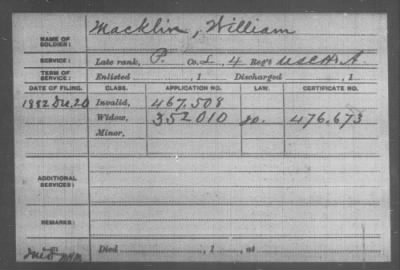 NAME OF SOLDIER: Macklin, William
SERVICE: Late rank, P. Co. L, 4 Reg't U S C H A.
TERM OF SERVICE: Enlisted , 1 Discharged , 1
DATE OF FILING. CLASS. APPLICATION NO. LAW. CERTIFICATE NO.
1882 Dec. 20 Invalid, 467.508
Widow, 352010 476.673
Minor,
ADDITIONAL SERVICES:
REMARKS:
Died , 1 , at